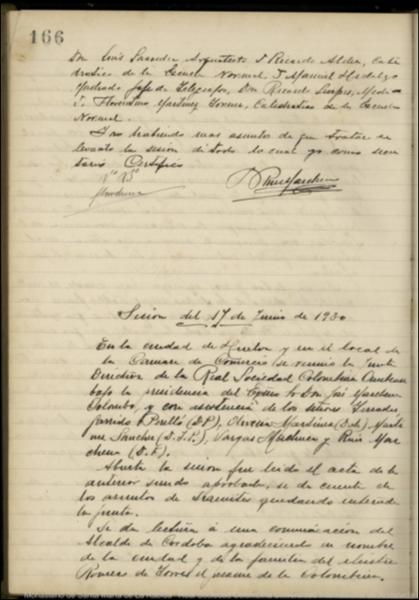 166
Don Luis Saavedra Arquitecto D Ricardo Alder, Cate
dratico de la Escuela Normal, D Manuel Hidalgo
Jefe de Telegrafos, Don Ricardo Medi
D. Florentino Martinez Torner, Catedratico de la Escuela
Normal.
Y no habiendo mas asuntos de que tratar se
levanto la sesión de todo lo cual yo como secre
tario Certifico
Vº Bº
Marchena
Sesion del 17 de Junio de 1930
En la ciudad de Huelva y en el local de
la Camara de Comercio se reunio la Junta
Directiva de la Real Sociedad Colombina Onubense
bajo la presidencia del Don José Marchena
Colombo, y con asistencia de los señores Terrades,
Garrido Perelló (D.P), Oliveira Martinez (D. A.), Marti
nez Sanchez (D. J.), Vargas Machuca y Ruiz Mar
chena (D. F.).
Abierta la sesion fue leido el acta de la
anterior siendo aprobada, se da cuenta de
los asuntos de tramites quedando enterada
la junta.
Se da lectura á una comunicación del
Alcalde de Cordoba agradeciendo en nombre
de la ciudad y de la familia del ilustre
Romero de Torres el pesame de la Colombina.